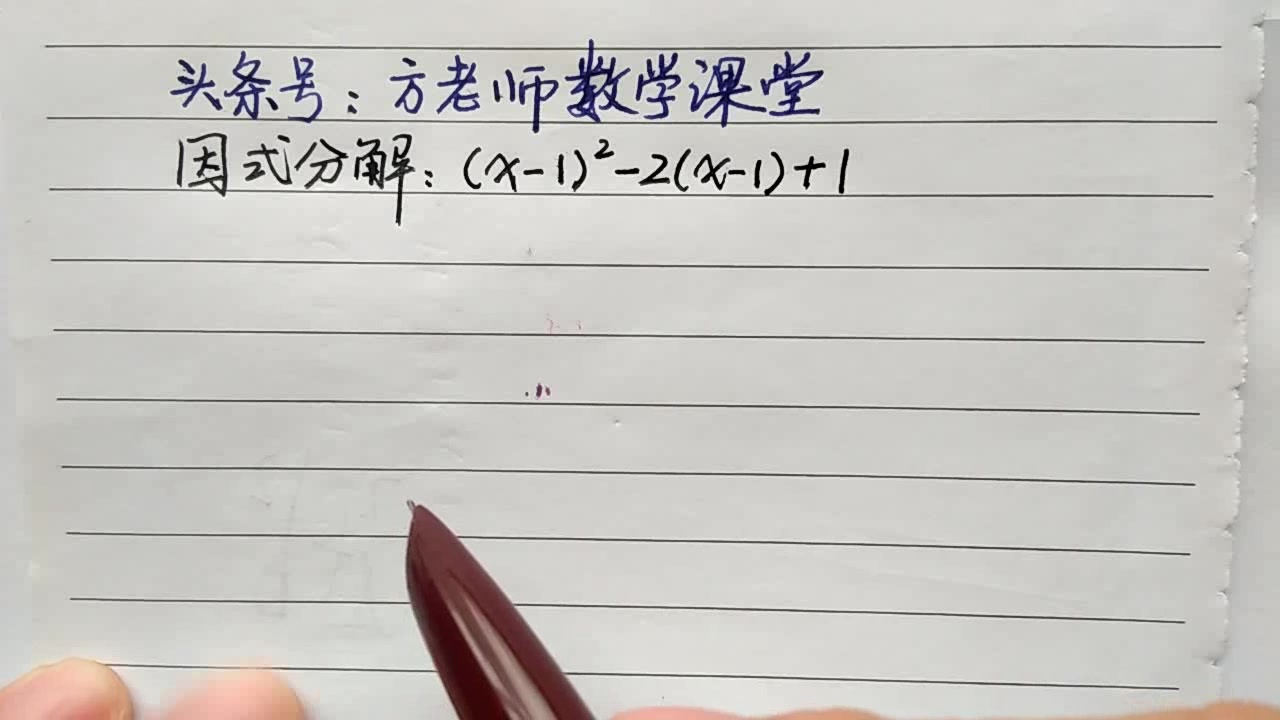 头条号：方老师数学课堂
因式分解：(x-1)²-2(x-1)+1